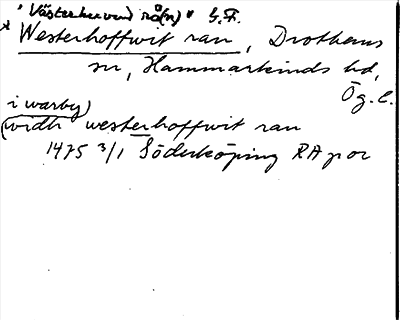 "Västerhuvud rå(n)" G.F.
* Westerhoffwit ran, Drothems
sn, Hammarkinds hd,
Ög.l.
i warby)
(widh westerhoffwit ran
1475 3/1 Söderköping RAp or